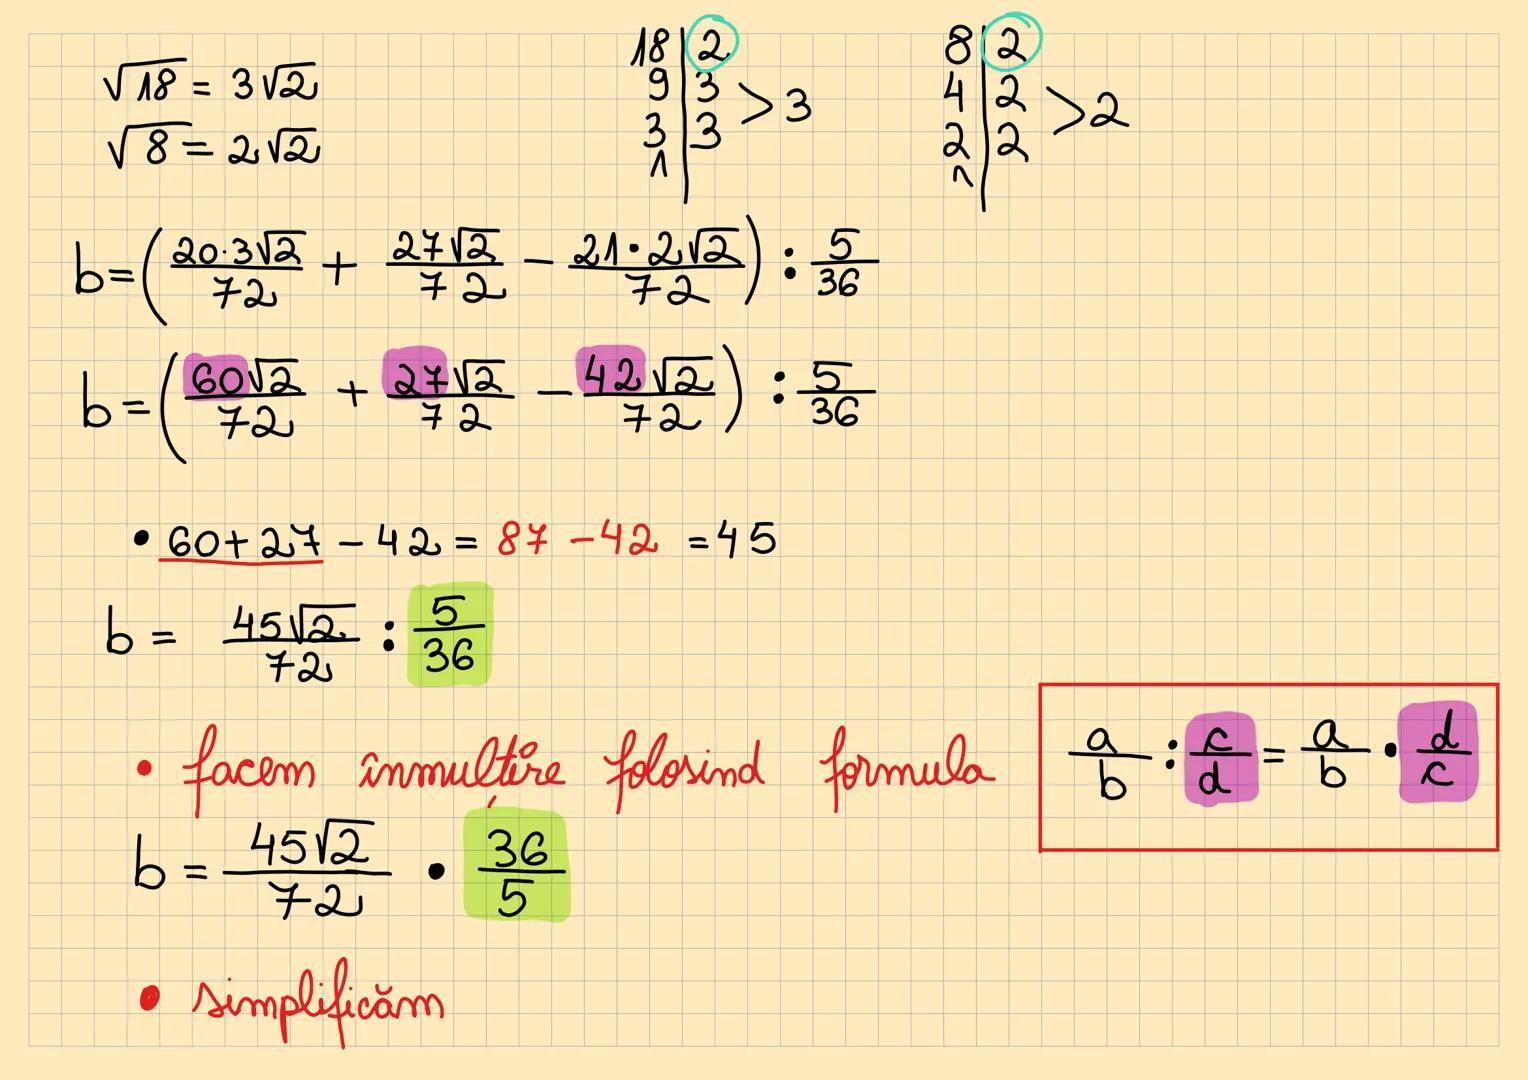 √18 = 3√2
√8 = 2√2
18 | 2
9 | 3
3 | 3 > 3
1 |
8 | 2
4 | 2
2 | 2 > 2
1 |
b = (20·3√2/72 + 27√2/72 − 21·2√2/72) : 5/36
b = (60√2/72 + 27√2/72 − 42√2/72) : 5/36
• 60+27 − 42 = 87 − 42 = 45
b = 45√2/72 : 5/36
• facem înmulțire folosind formula
a/b : c/d = a/b • d/c
b = 45√2/72 • 36/5
• simplificăm